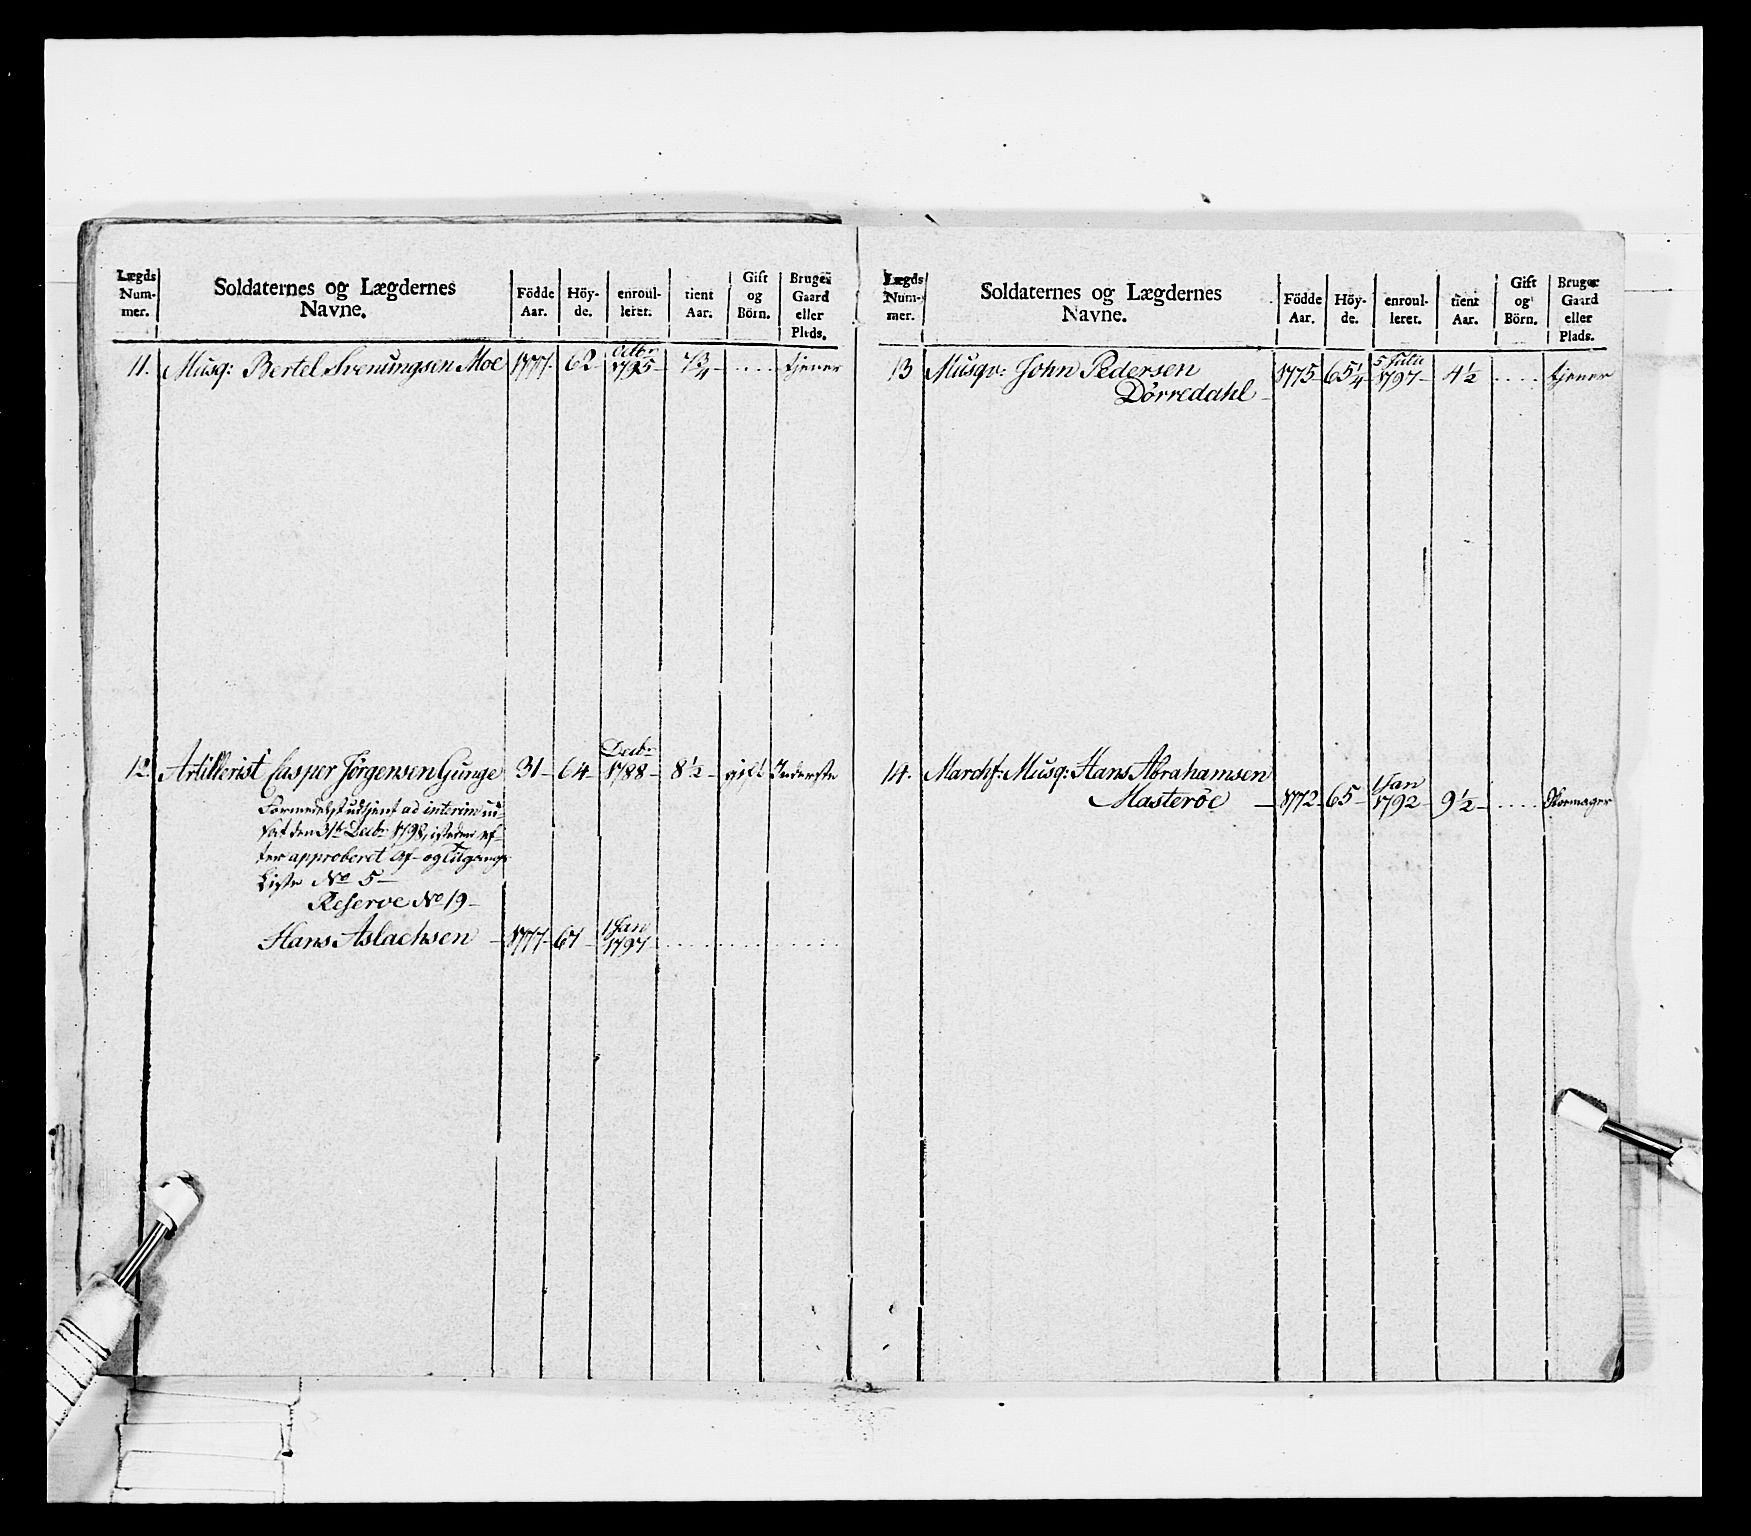 Lægds Num- mer. Soldaternes og Lægdernes Navne. Födde Aar. Höy- de. enroul- leret. tient Aar. Gift og Börn. Bruger Gaard eller Plads.
11. Musq: Bertel Svenungsen Moe 1777. 62 Octbr 1795 7¾ .... tjener
12. Artillerist Casper Jörgensen Gunge 31 64 Decbr 1788 8½ gift Inderste
Formedelst udtjent ad interim ud-
sat den 31te Decbr 1798, isteden ef-
ter approberet Af- og Tilgangs
Liste No 5
Reserve No 19
Hans Aslachsen 1777 67 1 Jan 1797
Lægds Num- mer. Soldaternes og Lægdernes Navne. Födde Aar. Höy- de. enroul- leret. tient Aar. Gift og Börn. Bruger Gaard eller Plads.
13 Musqv: John Pedersen
Dörredahl 1775 65¼ 5 Jula 1797 4½ .... tjener
14. Marchf: Musq: Hans Abrahamsen
Masteröe 1772 65 1 Jan 1792 9½ .... Skomager